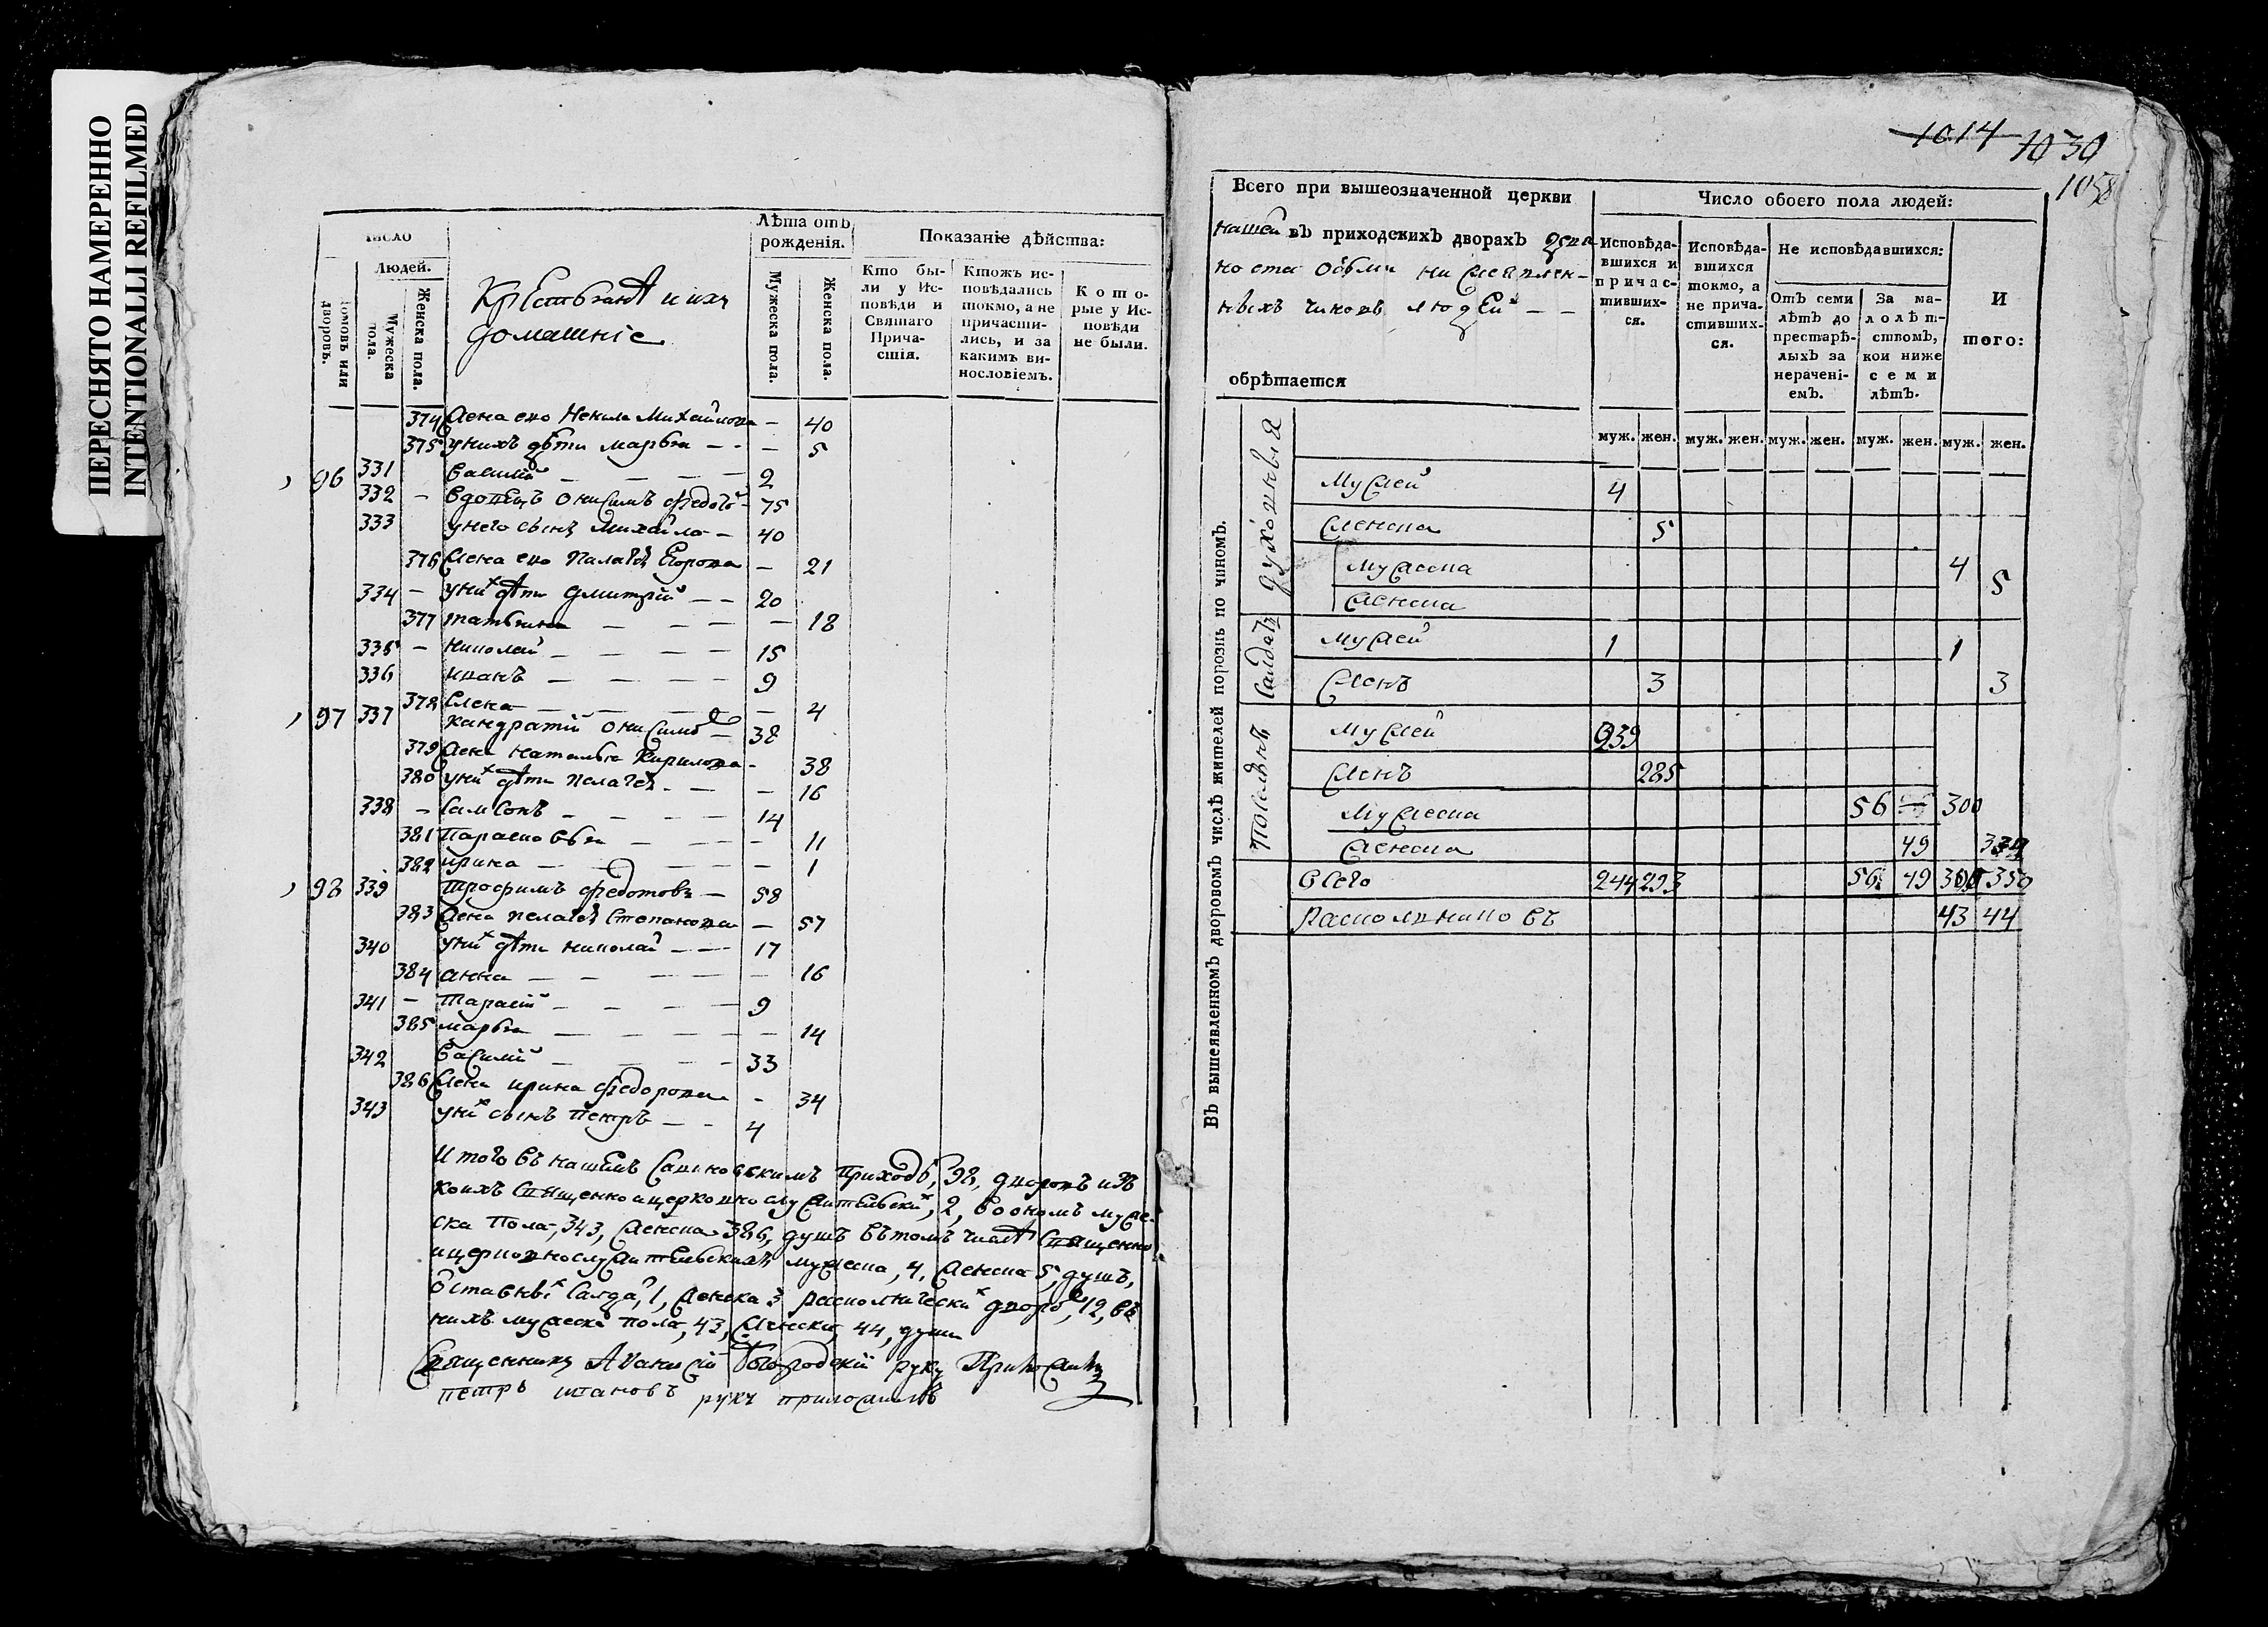 ПЕРЕСНЯТО НАМЕРЕННО
INTENTIONALLI REFILMED
Людей.
домовъ или дворовъ.
Мужеска пола.
Женска пола.
Крестьянѣ и ихъ
домашніе
Лѣта отъ рожденія.
Мужеска пола.
Женска пола.
Показаніе дѣйства:
Кто бы-
ли у Ис-
повѣди и
Святаго
Прича-
стія.
Ктожъ ис-
повѣдались
токмо, а не
причасти-
лись, и за
какимъ ви-
нословіемъ.
К о т о-
рые у Ис-
повѣди
не были.
374 Жена его Михайлова — 40
375 у нихъ дѣти марья — — 5
96 331 Василій — — — 2
332 — вдовецъ Онисимъ федото 75
333 у него сынъ Михайло — 40
376 Жена его Палагѣя Егорова — 21
334 — у них дѣти дмитрій — — 20
377 татьяна — — — 18
335 — николай — — — 15
336 иванъ — — — 9
378 Елена — — — 4
97 337 Кандратій Онисимо — 38
379 Жена наталья Кирилова — 38
380 у них дѣти пелагѣя — — 16
338 — Самсонъ — — — 14
381 Парасковья — — 11
382 ирина — — — 1
98 339 трофимъ федотовъ — 58
383 Жена пелагѣя Степанова — 57
340 у них дѣти николай — — 17
384 анна — — — 16
341 — тарасій — — — 9
385 марья — — — 14
342 Василій — — — 33
386 Жена ирина федорова — 34
343 у них сынъ Петръ — — 4
Итого въ нашемъ приходѣ, 98, дворовъ изъ
коихъ священно и церковно служительски, 2, во ономъ муже
ска пола, 343, женска 386, душъ въ томъ числѣ священно
и церковнослужительскихъ мужеска, 4, женска 5, душъ,
отставны Салда, 1, женска 3 раскольнически дворо, 12, въ
нихъ мужеска пола, 43, женска, 44, души
Священникъ руку Приложилъ
петръ ивановъ руку приложилъ
1014 1030
1058
Всего при вышеозначенной церкви
нашей въ приходскихъ дворахъ
людей — —
обрѣтается
Число обоего пола людей:
Исповѣда-
вшихся и
п р и ч а с-
тивших-
ся.
Исповѣда-
вшихся
токмо, а
не прича-
стивших-
ся.
Не исповѣдавшихся:
Отъ семи
лѣтъ до
престарѣ-
лыхъ за
нерачені-
емъ.
За ма-
л о л ѣ т-
ствомъ,
кои ниже
с е м и
лѣтъ.
И
того:
муж. жен. муж. жен. муж. жен. муж. жен. муж. жен.
Въ вышеявленномъ дворовомъ числѣ жителей порознь по чиномъ.
духовныя
Мужей 4
женска 5
Мужеска 4
женска 5
Салдатъ
Мужей 1 1
женъ 3 3
Мужей 239
женъ 285
Мужеска 56 300
женска 49 334
всего 244 293 56 49 350
43 44